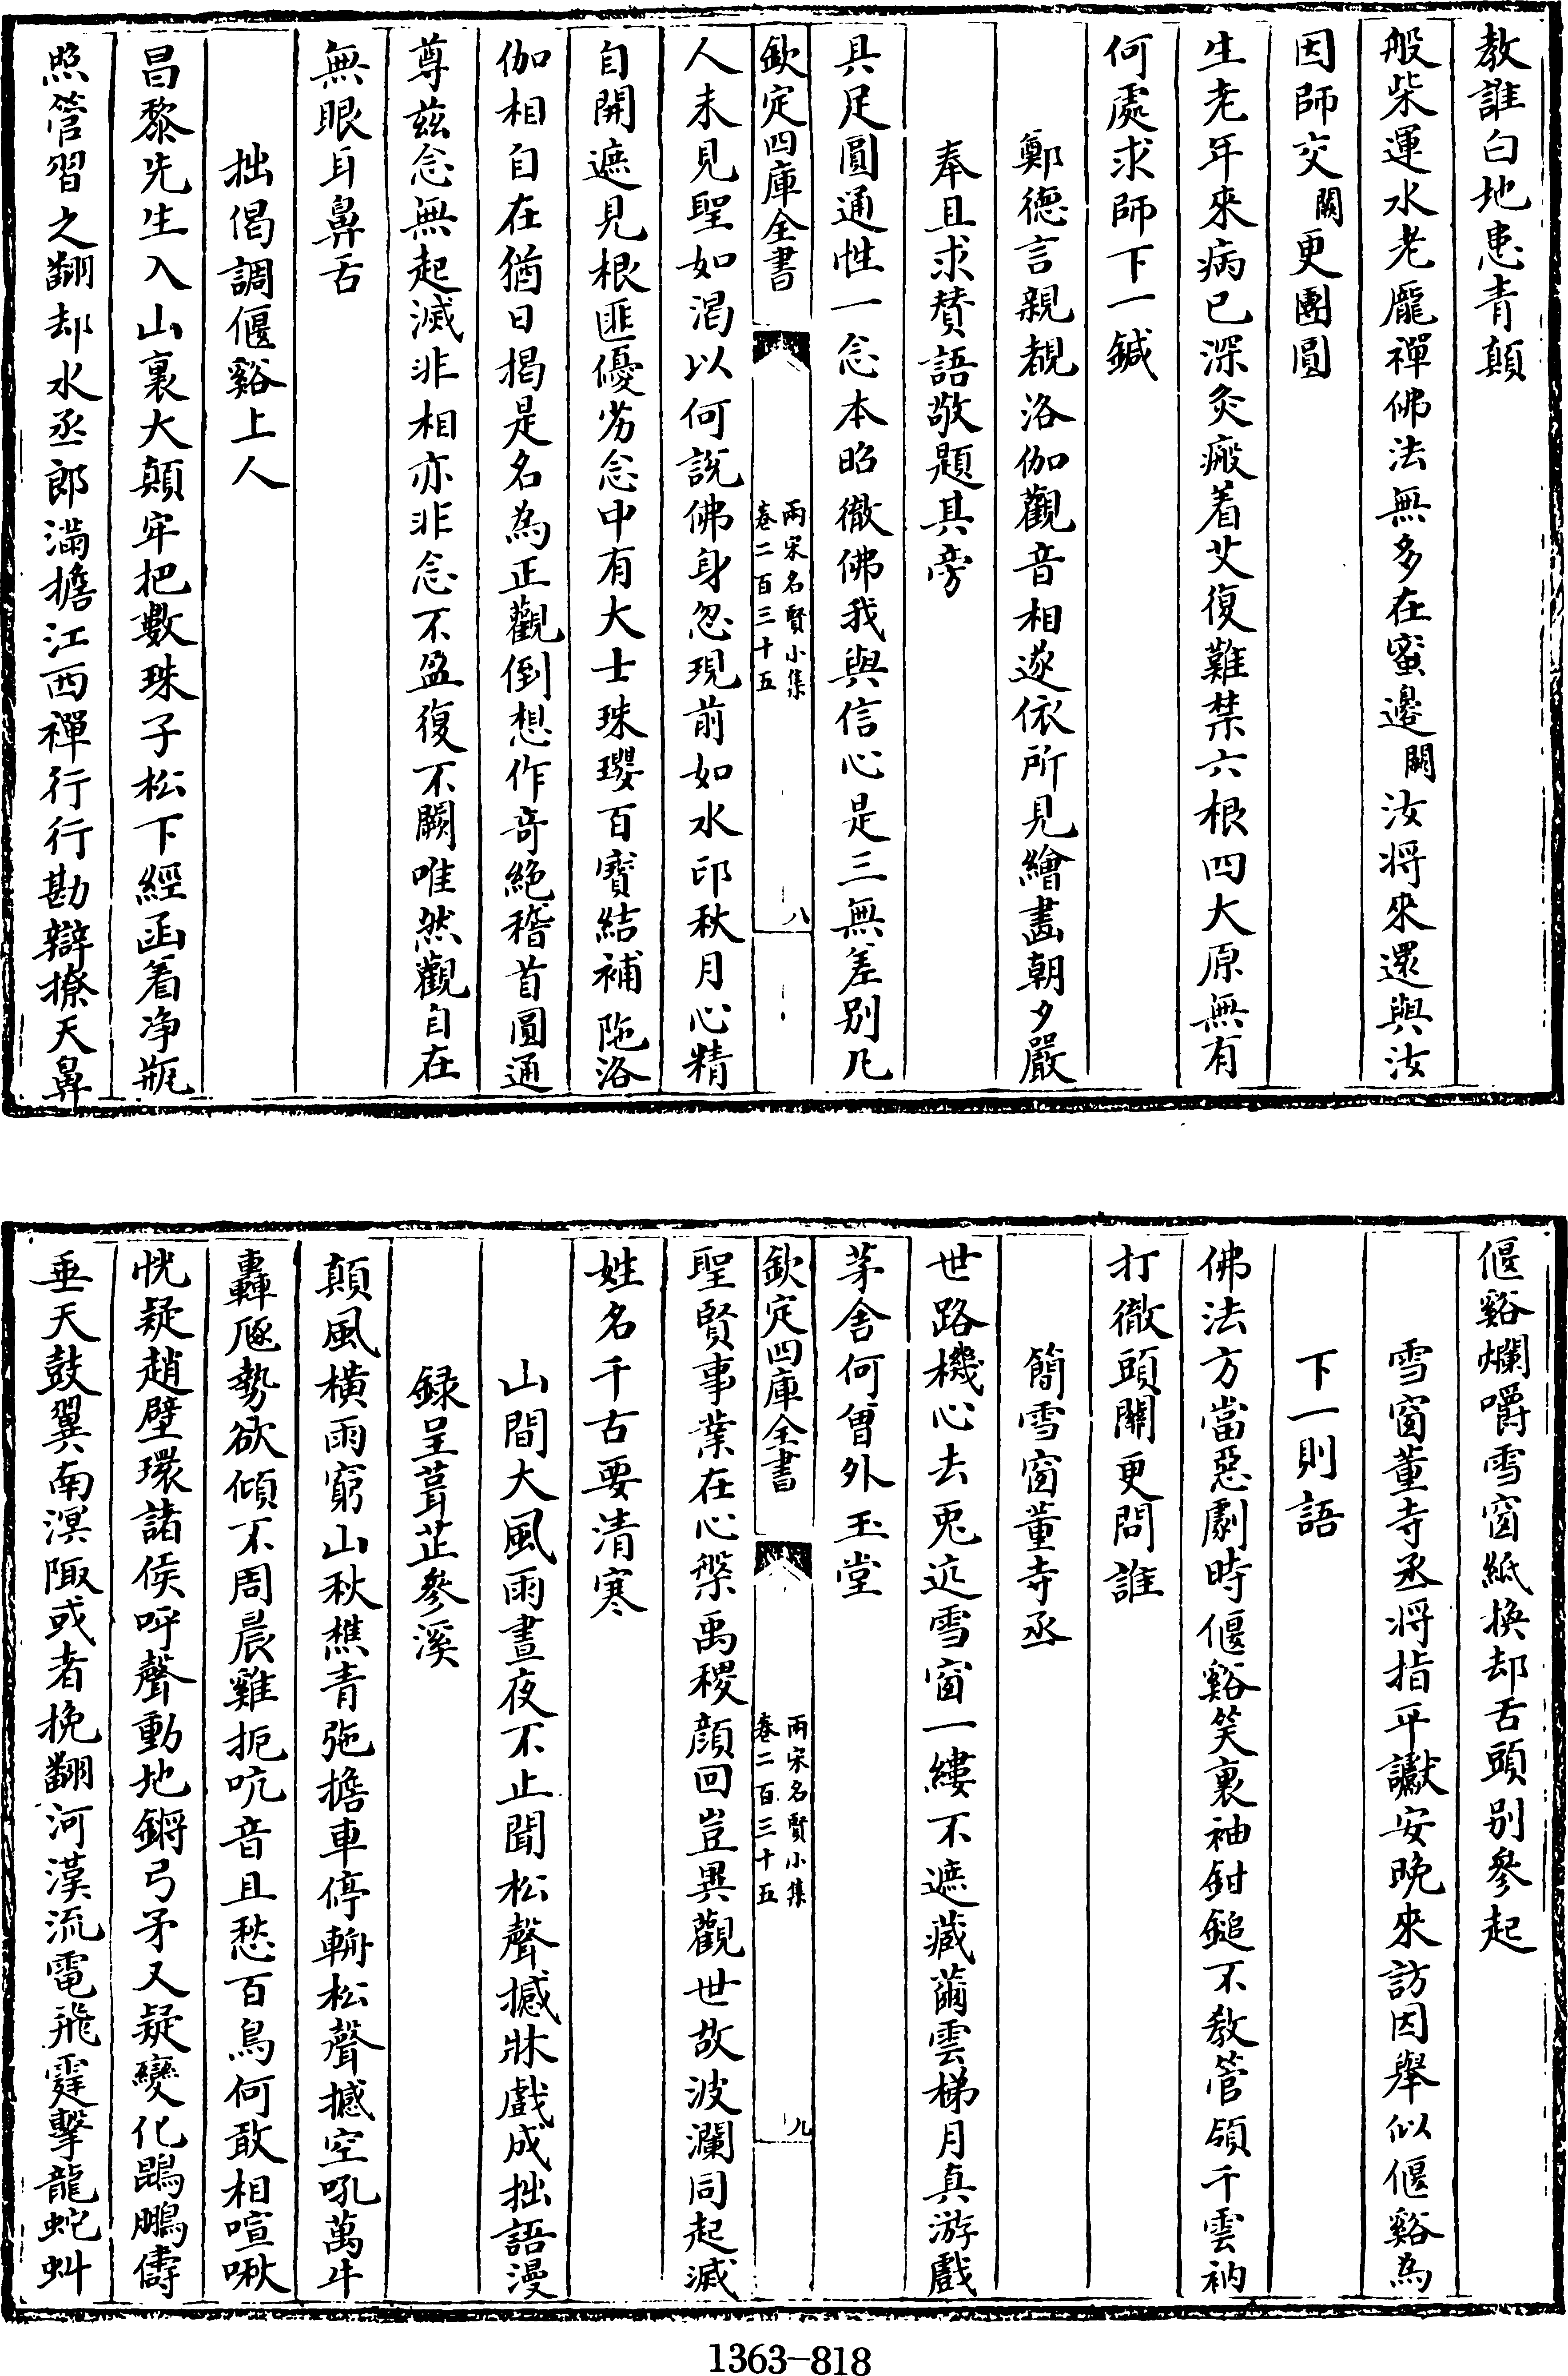 教誰白地患青顛
般柴運水老龐禪佛法無多在蜜邊闕汝将來還與汝
因師交闕更團圓
生老年來病已深灸瘢着艾復難禁六根四大原無有
何處求師下一鍼
鄭德言親覩洛伽觀音相遂依所見繪畫朝夕嚴
奉且求賛語敬題其旁
具足圓通性一念本昭徹佛我與信心是三無差别凡
欽定四庫全書
兩宋名賢小集
卷二百三十五
八
人未見聖如渴以何說佛身忽現前如水印秋月心精
自開遮見根匪優劣念中有大士珠瓔百寳結補陁洛
伽相自在猶日揭是名為正觀倒想作奇絶稽首圓通
尊兹念無起滅非相亦非念不盈復不闕唯然觀自在
無眼耳鼻舌
拙偈調偃谿上人
昌黎先生入山裏大顛牢把數珠子松下經函着净瓶
照管習之翻却水丞郎滿擔江西禪行行勘辯撩天鼻
偃谿爛嚼雪窗紙換却舌頭别參起
雪窗董寺丞将指平讞安晚來訪因舉似偃谿為
下一則語
佛法方當惡劇時偃谿笑裏袖鉗鎚不教管領千雲衲
打徹頭關更問誰
簡雪窗董寺丞
世路機心去兎迒雪窗一縷不遮藏繭雲梯月真游戲
茅舍何曾外玉堂
欽定四庫全書
兩宋名賢小集
卷二百三十五
九
聖賢事業在心槃禹稷顔回豈異觀世故波瀾同起滅
姓名千古要清寒
山間大風雨晝夜不止聞松聲撼牀戲成拙語漫
録呈葺芷參溪
顛風横雨窮山秋樵青弛擔車停輈松聲撼空吼萬牛
轟豗勢欲傾不周晨雞扼吭音且愁百鳥何敢相喧啾
恍疑趙壁環諸侯呼聲動地鏘弓矛又疑變化鵾鵬儔
垂天鼓翼南溟陬或者挽翻河漢流電飛霆擊龍蛇虯
1363-818